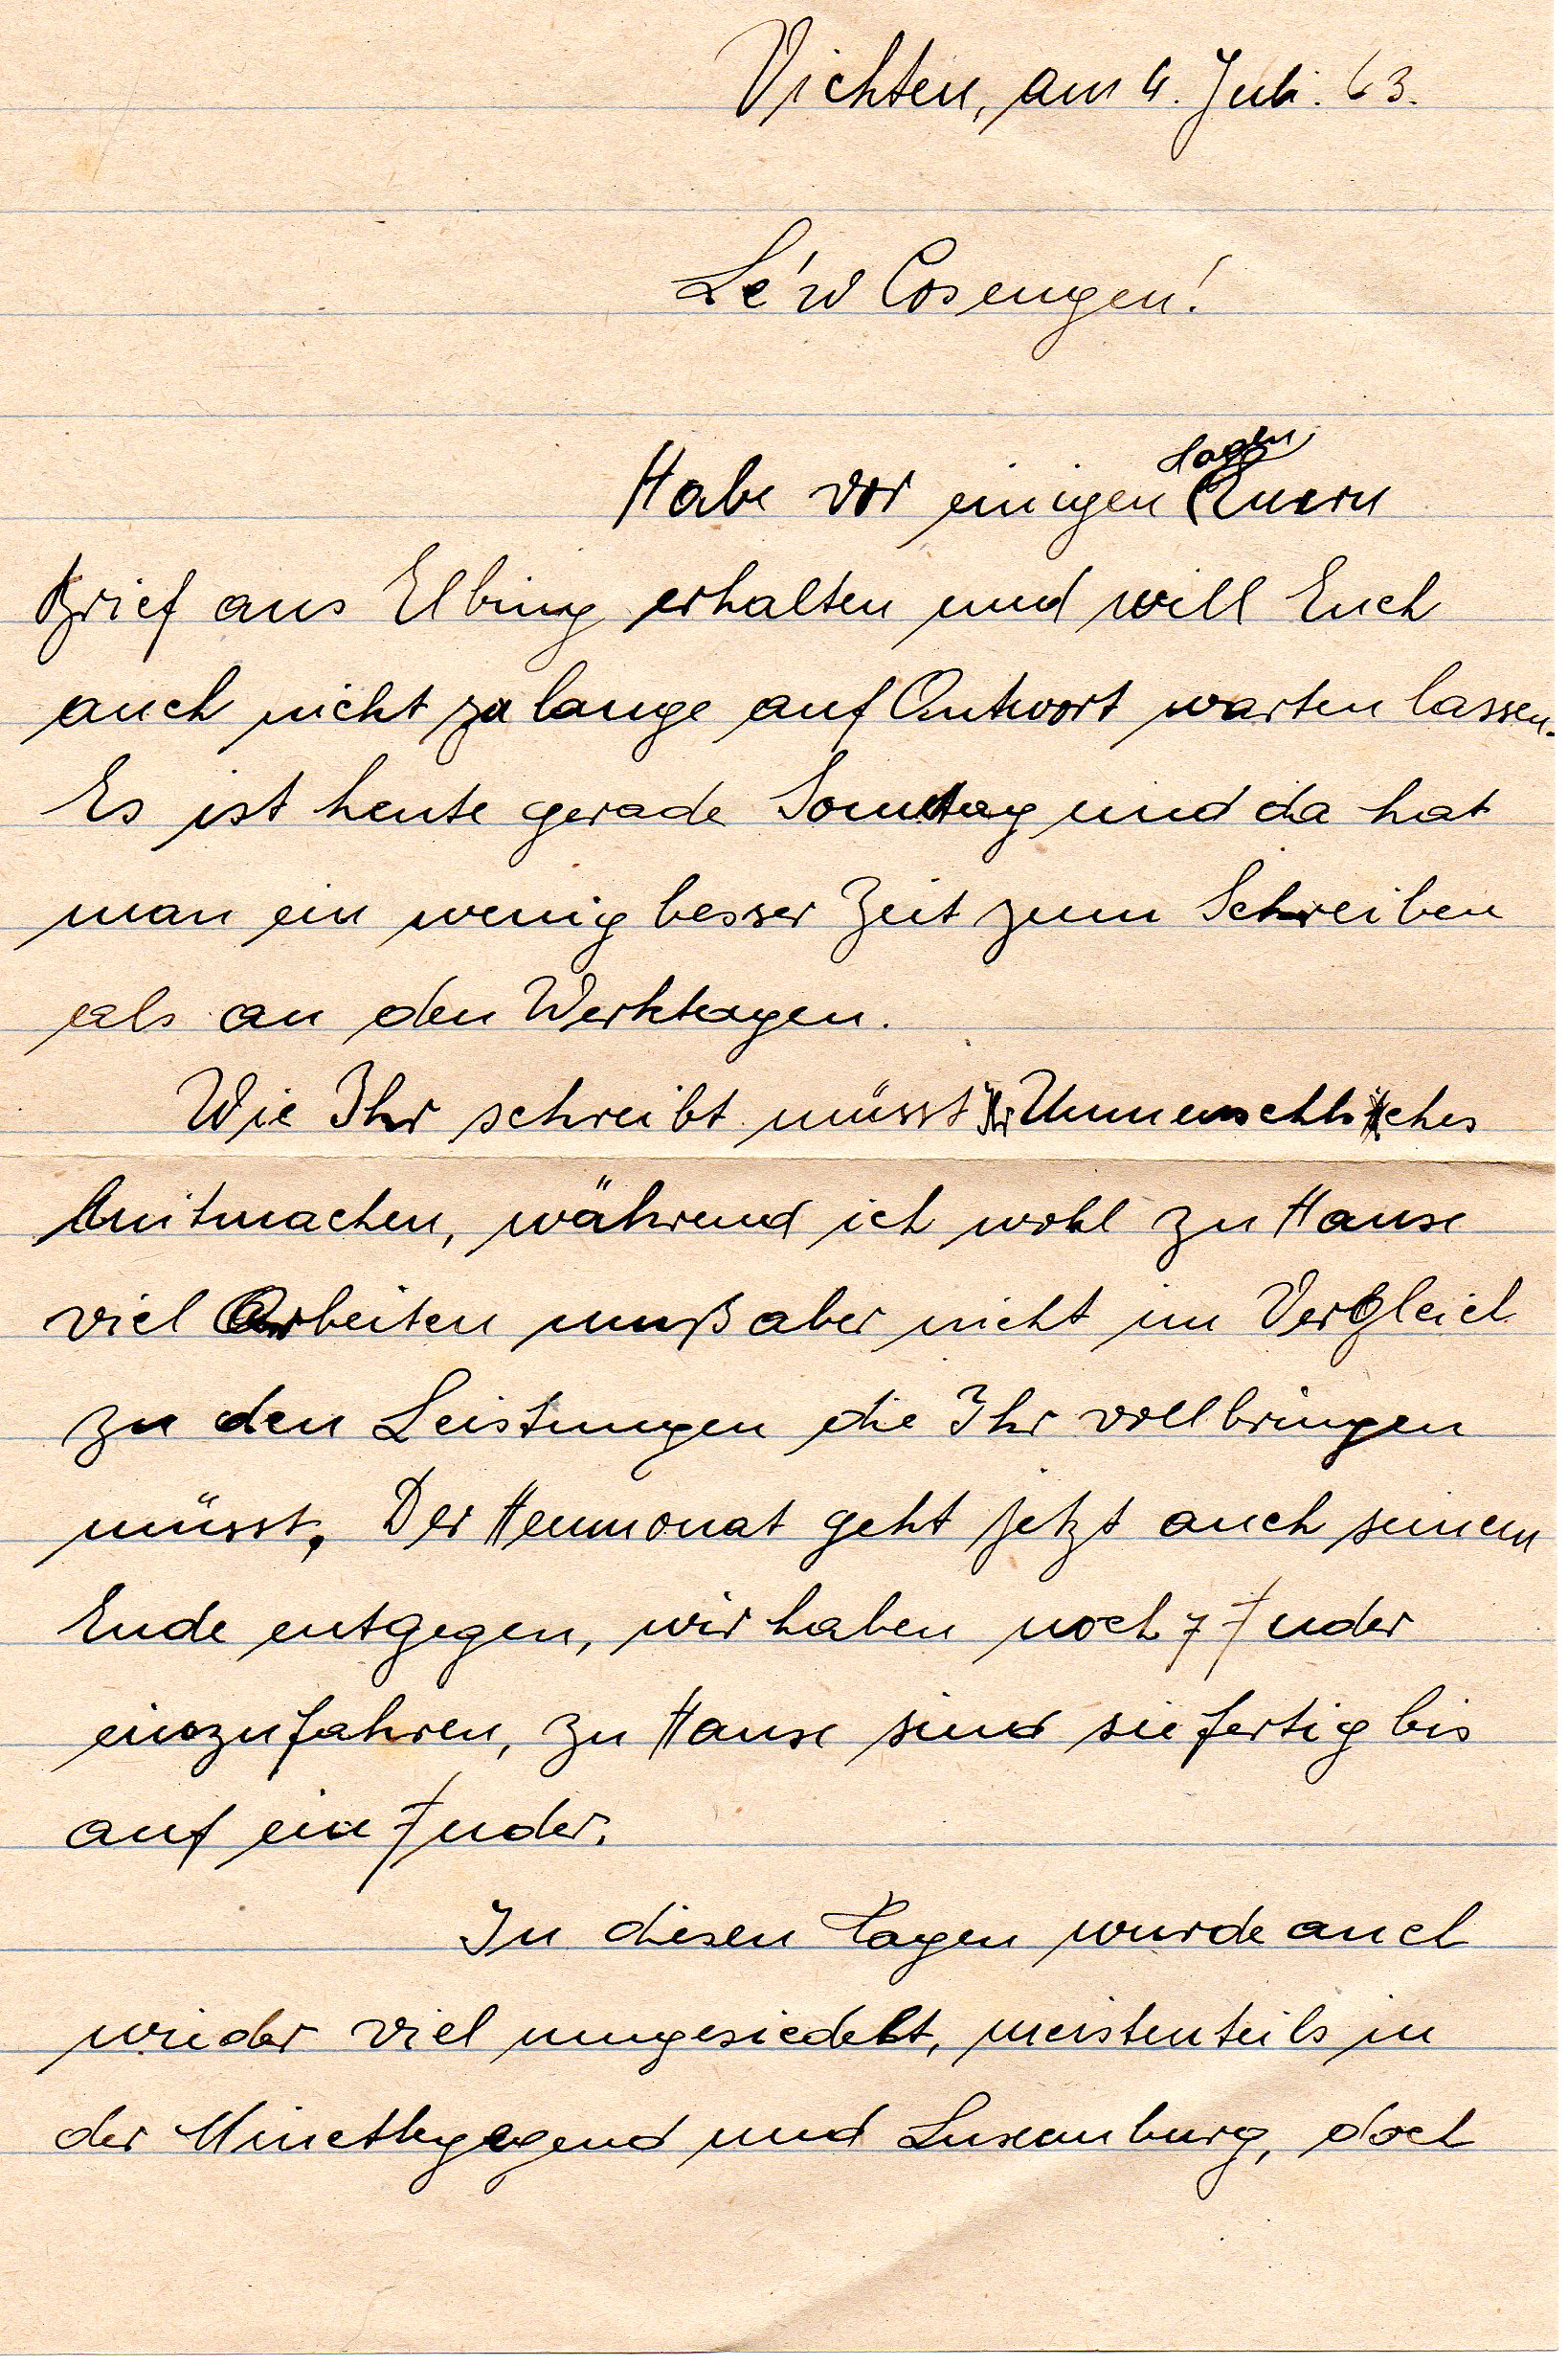 Vichten, am 4. Juli. 63.
Lé'w Cosengen!
Habe vor einigen Tagen Euern
Brief aus Elbing erhalten und will Euch
auch nicht zu lange auf Antwort warten lassen.
Es ist heute gerade Sonntag und da hat
man ein wenig besser Zeit zum Schreiben
als an den Werktagen.
Wie Ihr schreibt müsst Ihr Unmenschliches
mitmachen, während ich wohl zu Hause
viel Arbeiten muß aber nicht im Vergleich
zu den Leistungen die Ihr vollbringen
müsst. Der Heumonat geht jetzt auch seinem
Ende entgegen, wir haben noch 7 Fuder
einzufahren, zu Hause sind sie fertig bis
auf ein Fuder.
In diesen Tagen wurde auch
wieder viel umgesiedelt, meistenteils in
der Minettegegend und Luxemburg, doch